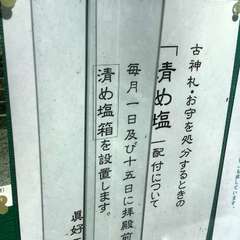 古神札・お守を処分するときの
「清め塩」配付について
毎月一日及び十五日に拝殿前
清め塩箱を設置します。
眞好